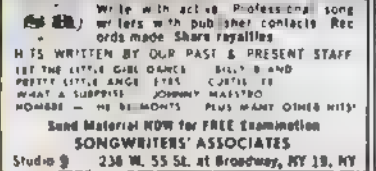 Write with active Professional song
writers with publisher contacts Rec
ords made Share royalties
HITS WRITTEN BY OUR PAST & PRESENT STAFF
LET THE LITTLE GIRL DANCE BILLY BLAND
PRETTY LITTLE ANGEL EYES CURTIS LEE
WHAT A SURPRISE JOHNNY MAESTRO
NOMBRE — HE BE MONTS PLUS MANY OTHER HITS!
Send Material NOW for FREE Examination
SONGWRITERS' ASSOCIATES
Studio 9 236 W. 55 St. at Broadway, NY 19, NY